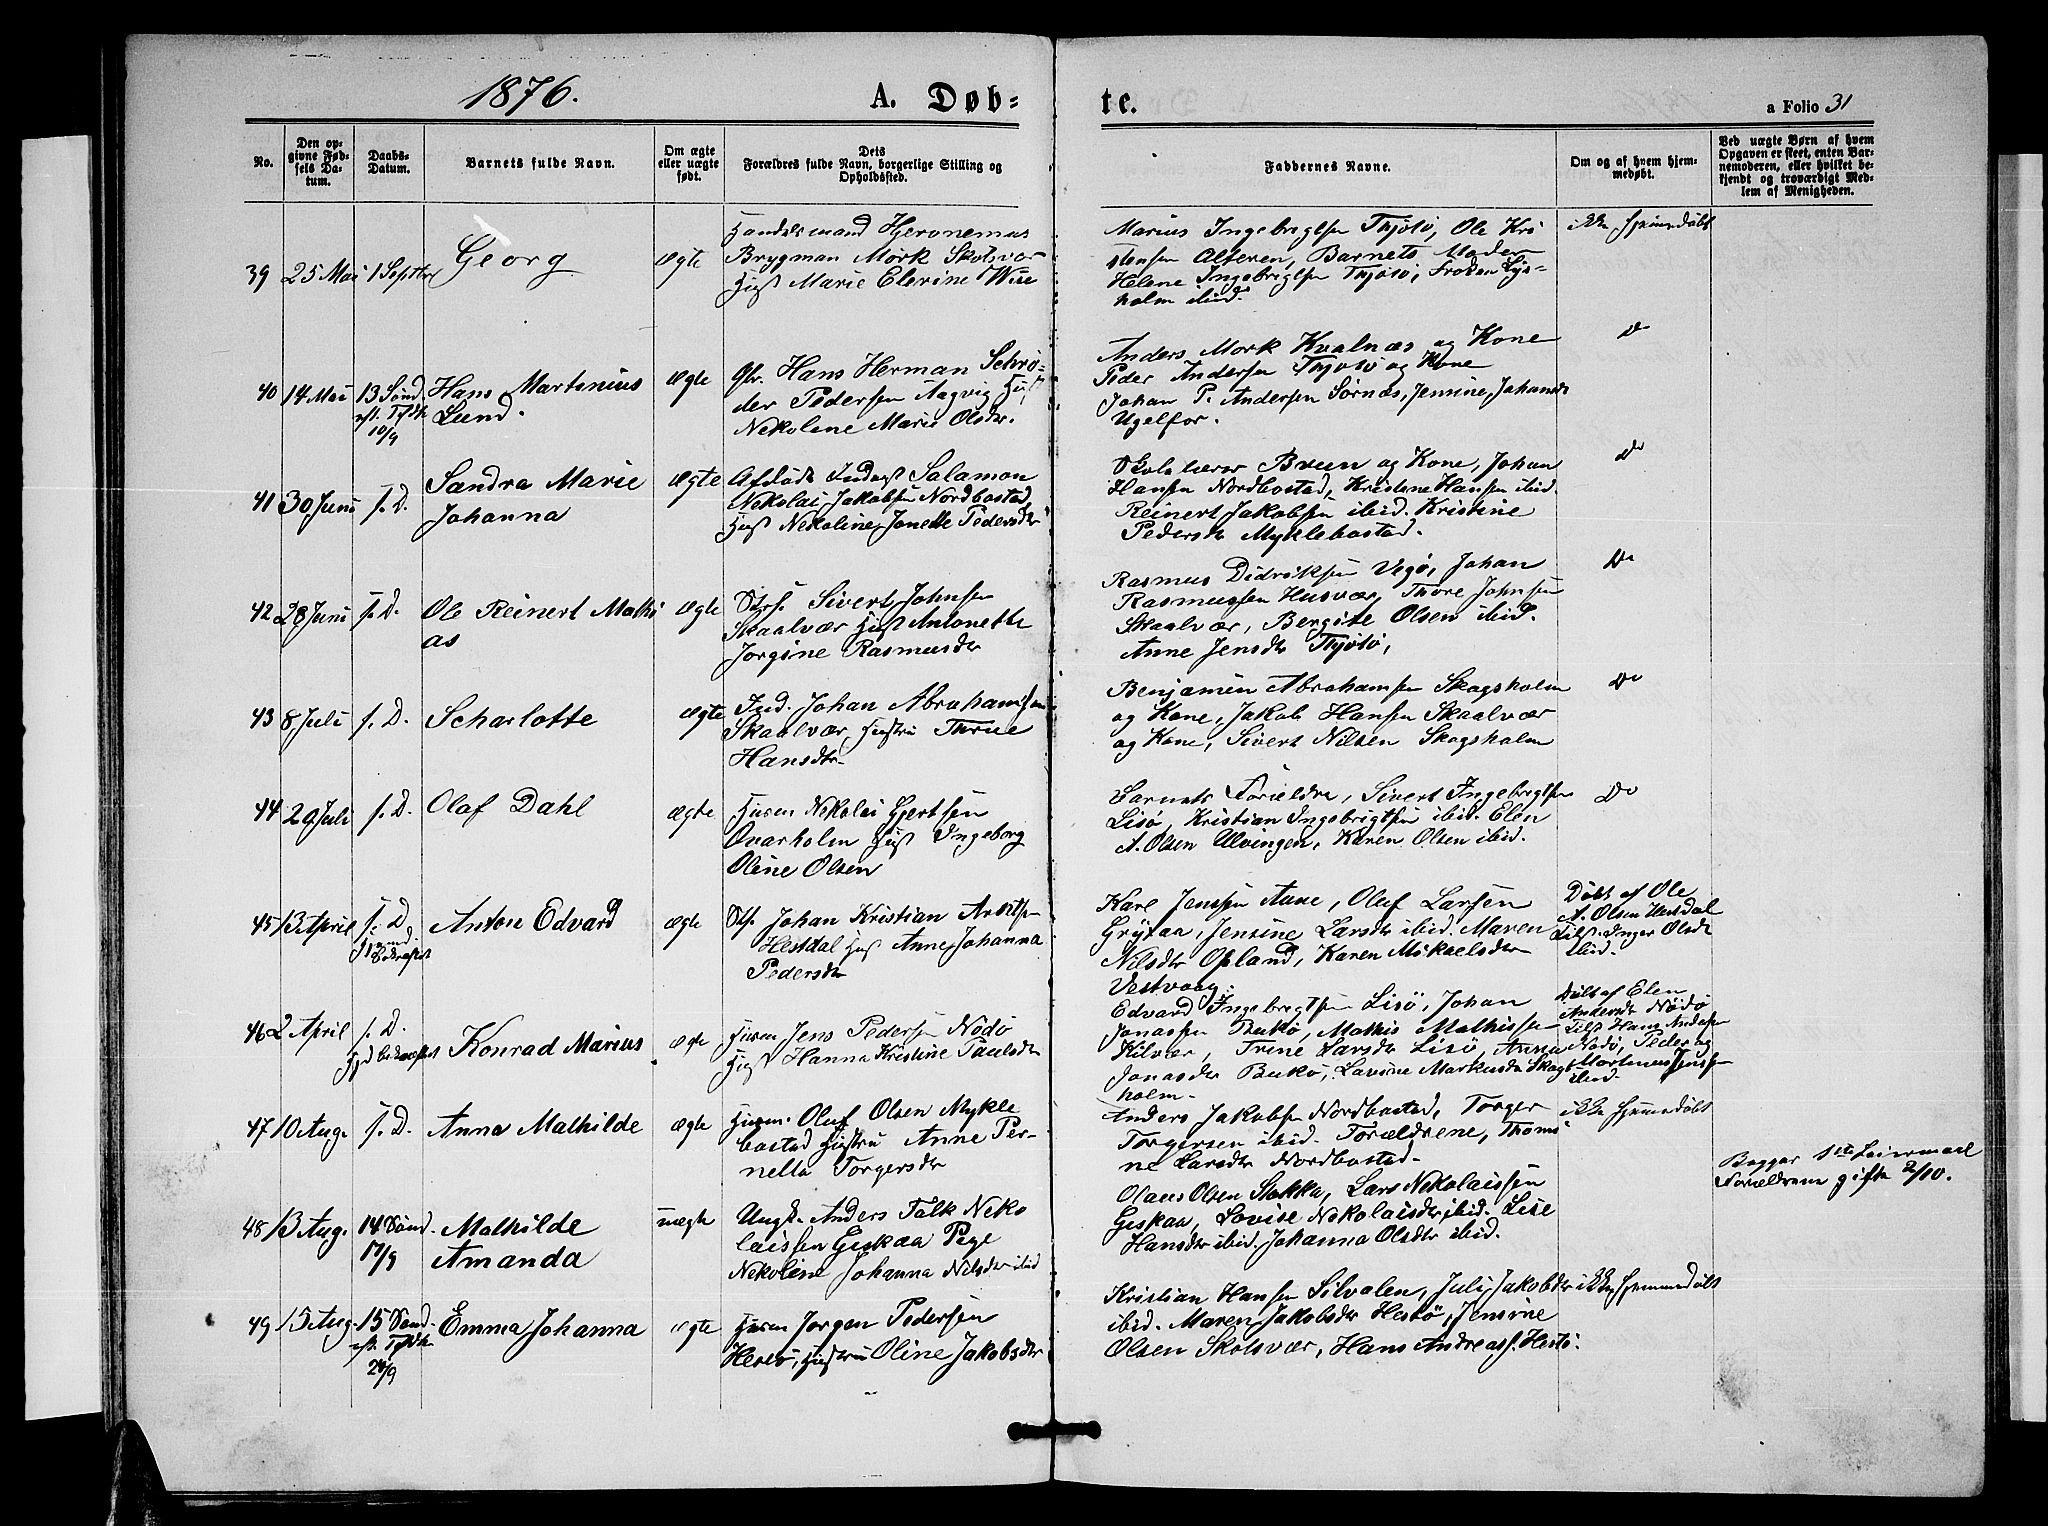 1876.
A. Døb-
te.
a Folio 31
No.
Den op-
givne Fød-
sels Da-
tum.
Daabs-
Datum.
Barnets fulde Navn.
Om ægte
eller uægte
født.
Dets
Forældres fulde Navn, borgerlige Stilling og
Opholdssted.
Faddernes Navne.
Om og af hvem hjem-
medøbt.
Ved uægte Børn af hvem
Opgaven er skeet, enten Bar-
nemoderen, eller hvilket be-
kjendt og troværdigt Med-
lem af Menigheden.
39 25 Mai 1 Septbr
Georg
ægte
Handelsmand Hjeronemus
Brygman Mørk Skolsvær
Hust Marie Elerine Wise
Marius Ingebrigtsen Thjøtø, Ole Kri
stensen Alteren, Barnets Moder
Helene Ingebrigtsen Thjøtø, Frøken Lys-
holm ibid.
ikke hjemmedøbt
40 14 Mai
13 Sønd.
eft. Trfdh
10/9
Hans Martinius
Lund.
ægte
Gbr. Hans Herman Schrø-
der Pedersen Aagvig Hust
Nekoline Marie Olsdr.
Anders Mørk Kvalnæs og Kone
Peder Andersen Thjøtø og Kone
Johan P. Andersen Sørnæs, Jensine Johansdr
Ugelfor.
Do
41 30 Juni s. D.
Sandra Marie
Johanna
ægte
Afdøde Inderst Salamon
Nekolai Jakobsen Nordbostad
Hust Nekoline Jonette Pedersdr
Skolelærer Bruun og Kone, Johan
Hansen Nordbostad, Kristene Hansen ibid.
Reinert Jakobsen ibid. Kristine
Pedersdr Myklebostad.
Do
42 28 Juni s. D.
Ole Reinert Mathi
as
ægte
Strs. Sivert Johnsen
Skaalvær Hust Antonette
Jorgine Rasmusdr
Rasmus Didriksen Vegø, Johan
Rasmussen Husvær, Thore Johnsen
Skaalvær, Bergite Olsen ibid.
Anne Jensdr Thjøtø,
Do
43 8 Juli s. D.
Scharlotte
ægte
Ind. Johan Abrahamsen
Skaalvær, Hustru Thrine
Hansdr
Benjamin Abrahamsen Skagsholm
og Kone, Jakob Hansen Skaalvær
og Kone, Sivert Nilsen Skogsholm
Do
44 29 Juli s. D.
Olaf Dahl
ægte
Husm Nekolai Gjertsen
Qvarholm Hust Ingeborg
Oline Olsen
Barnets Forældre, Sivert Ingebrigtsen
Lisø, Kristian Ingebrigtsen ibid. Elen
A. Olsen Ulvingen, Karen Olsen ibid.
Do
45 13 April
s. D.
Anton Edvard
ægte
Strs. Johan Kristian Arntsen
Hestdal Hust Anne Johanna
Pedersdr
Karl Jensen Aune, Oluf Larsen
Grytaa, Jensine Larsdr ibid. Maren
Nilsdr Opland, Karen Mikaelsdr
Vestvaag.
Døbt af Ole
A. Olsen Hestdal
Tilst. Inger Olsdr
ibid.
46 2 April
s. D.
Hjd bekræftet
Konrad Marius
ægte
Husm Jens Pedersen Nødø
Hust Hanna Kristine Paulsdr
Edvard Ingebregtsen Lisø, Johan
Jonassen Bukø, Mathis Mathissen
Kilvær, Trine Larsdr Lisø, Anna
Jonasdr Bukø, Lavine Markusdr Skags-
holm-
Døbt af Elen
Andersdr Nødø
Tilst Hans Andersen
Nodø, Peder og
Mortinus Jensen
ibid.
47 10 Aug. s. D.
Anna Mathilde
ægte
Husm. Oluf Olsen Mykle
bostad Hustru Anne Per-
nella Torgersdr
Anders Jakobsen Nordbostad, Torger
Torgersen ibid. Forældrene, Thomi-
ne Larsdr Nordbostad.
ikke hjemmedøbt
48 13 Aug.
14 Sønd.
17/9
Mathilde
Amanda
uægte
Ungk. Anders Falk Neko
laissen Giskaa Pige
Nekoline Johanna Nilsdr ibid
Olaus Olsen Stokka, Lars Nekolaissen
Giskaa, Lovise Nekolaisdr ibid. Lise
Hansdr ibid. Johanna Olsdr ibid.
Begges 1ste Leiermaal
Forældrene gifte 2/10.
49 15 Aug.
15 Sønd.
eft. Trfdh
24/9
Emma Johanna
ægte
Husm Jørgen Pedersen
Hestø, Hustru Oline Jakobsdr
Kristian Hansen Silvalen, Juli Jakobsdr
ibid. Maren Jakobsdr Hestø, Jensine
Olsen Skolsvær, Hans Andreass. Hestø.
ikke hjemmedøbt